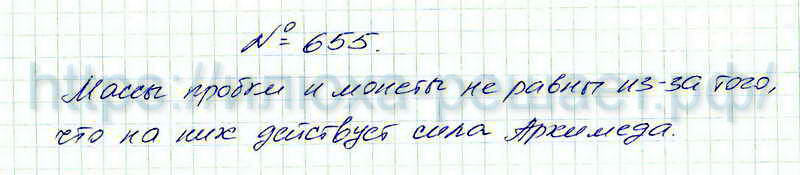 № 655.
Массы пробки и монеты не равны из-за того,
что на них действует сила Архимеда.